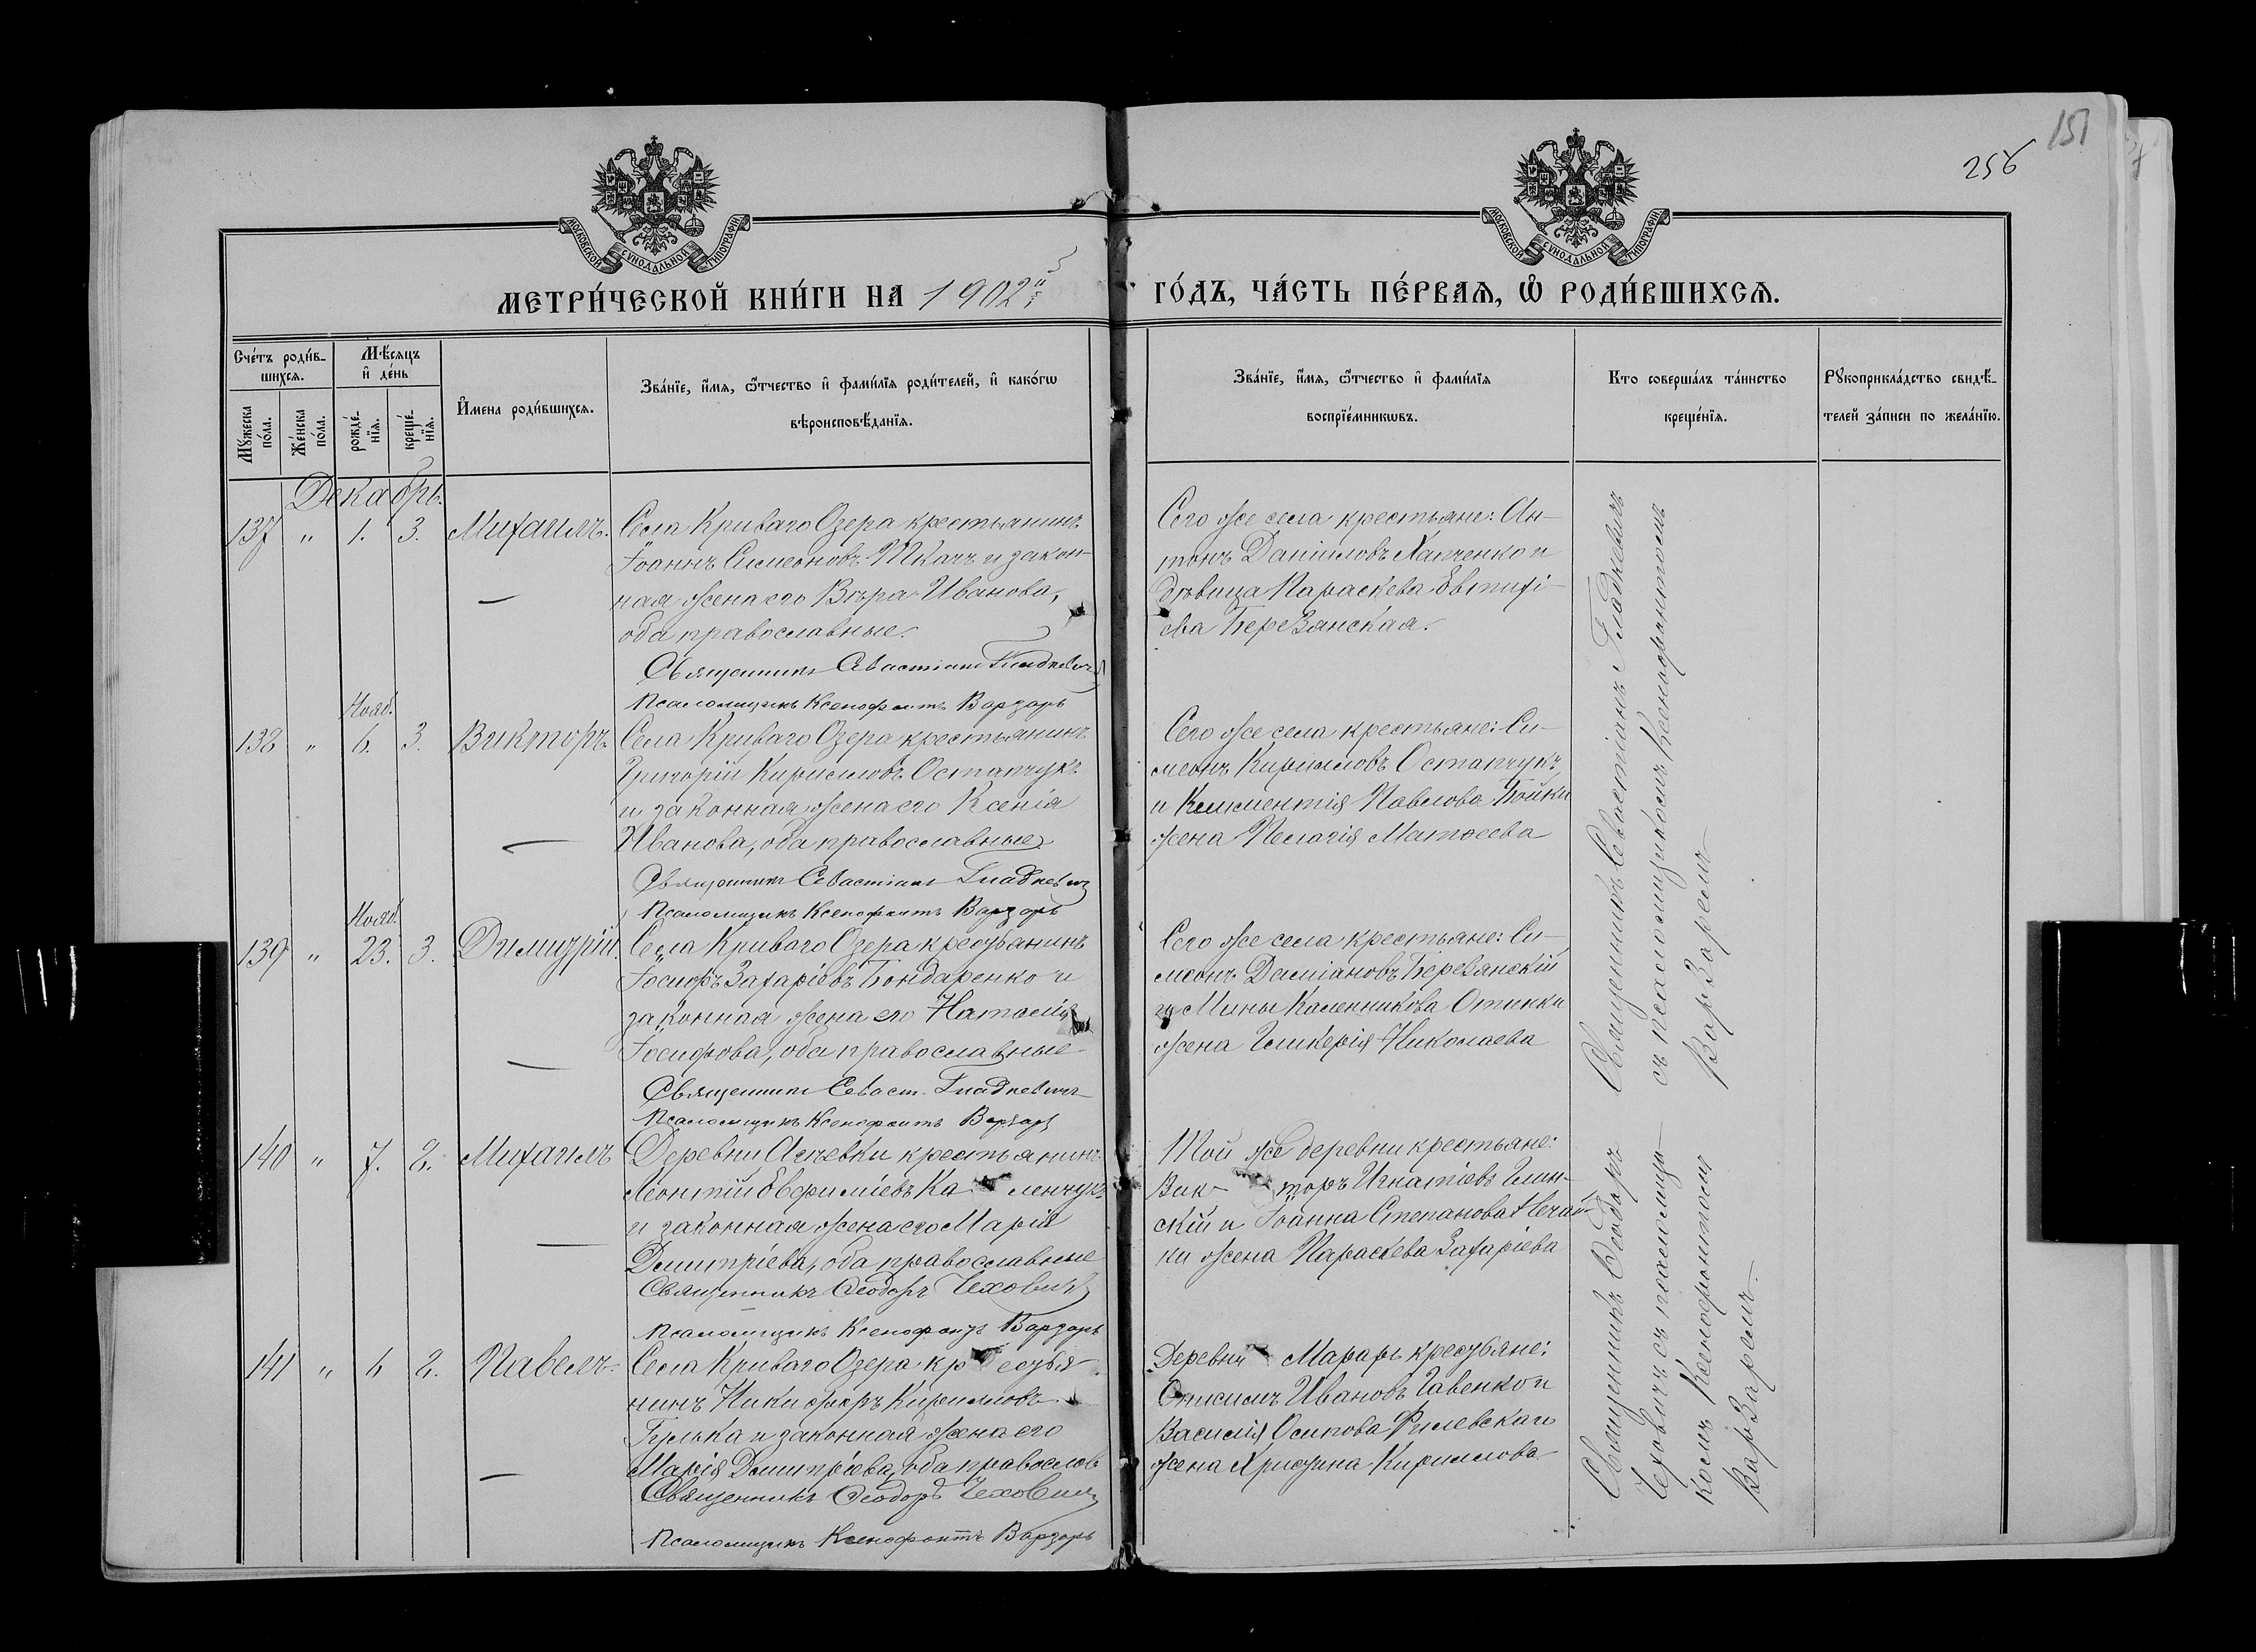 151
256
МОСКОВСКОЙ СУНОДАЛЬНОЙ ТИПОГРАФІИ
МОСКОВСКОЙ СУНОДАЛЬНОЙ ТИПОГРАФІИ
МЕТРИ́ЧЕСКОЙ КНИ́ГИ НА 1902й
ГО́ДЪ, ЧА́СТЬ ПЕ́РВАѦ, Ѡ РОДИ́ВШИХСѦ.
Сче́тъ роди́в-
шихсѧ.
Мѣ́сѧцъ
и де́нь
Мꙋ́жеска
по́ла.
Же́нска
по́ла.
рожде́-
нїѧ.
креще́-
нїѧ.
И҆мена роди́вшихсѧ.
Зва́нїе, и҆́мѧ, ѻ҆́тчество и҆ фами́лїѧ роди́телей, и҆ како́гѡ
вѣроисповѣ́данїѧ.
Зва́нїе, и҆́мѧ, ѻ҆́тчество и҆ фами́лїѧ
воспрїе́мникѡвъ.
Кто соверша́лъ та́инство
креще́нїѧ.
Рꙋкоприкла́дство свидѣ́-
телей за́писи по жела́нїю.
Декабрь.
137 " 1. 3. Михаилъ.
Села Криваго Озера крестьянинъ
Іоаннъ Симеоновъ Ткачъ и закон-
ная жена его Вѣра Иванова,
оба православные.
Священникъ Севастіанъ Гладкевичъ
Псаломщикъ Ксенофонтъ Варзарь
Сего же села крестьяне: Ан-
тонъ Даніиловъ Хапченко и
дѣвица Параскева Евтихі-
ева Березанская.
Нояб.
138 " 6. 3. Викторъ.
Села Криваго Озера крестьянинъ
Григорій Кирилловъ Остапчукъ
и законная жена его Ксенія
Иванова, оба православные
Священникъ Севастіанъ Гладкевичъ
Псаломщикъ Ксенофонтъ Варзарь
Сего же села крестьяне: Си-
меонъ Кирилловъ Остапчукъ
и Климентія Павлова Бойки
жена Пелагія Матѳеева
Нояб.
139 " 23. 3. Димитрій.
Села Криваго Озера крестьянинъ
Іосифъ Захаріевъ Бондаренко и
законная жена его Наталія
Іосифова, оба православные
Священникъ Севаст. Гладкевичъ
Псаломщикъ Ксенофонтъ Варзарь
Сего же села крестьяне: Си-
меонъ Даміановъ Березанскій
и Мины Каленникова
жена Гликерія Николаева
140 " 7. 8. Михаилъ
Деревни крестьянинъ
Леонтій Евфиміевъ Ка ленчукъ
и законная жена его Марія
Димитріева, оба православные
Священникъ Ѳеодоръ Чеховичъ
Псаломщикъ Ксенофонтъ Варзарь
Той же деревни крестьяне:
Вик- торъ Игнатіевъ Глин-
скій и Іоанна Степанова Нечай-
ки жена Параскева Захаріева
141 " 6 8. Павелъ
Села Криваго Озера кр естья-
нинъ Никифоръ Кирилловъ
Гулька и законная жена его
Марія Димитріева, оба православ
Священникъ Ѳеодоръ Чеховичъ
Псаломщикъ Ксенофонтъ Варзарь
Деревни крестьяне:
Онисимъ Ивановъ Гавенко и
Василія Осипова Рилевскаго
жена Христина Кириллова
Священникъ Севастіанъ Гладкевичъ
съ псаломщикомъ Ксенофонтомъ
Варзаремъ
Священникъ Ѳеодоръ
Чеховичъ съ псаломщи-
комъ Ксенофонтомъ
Варзаремъ.